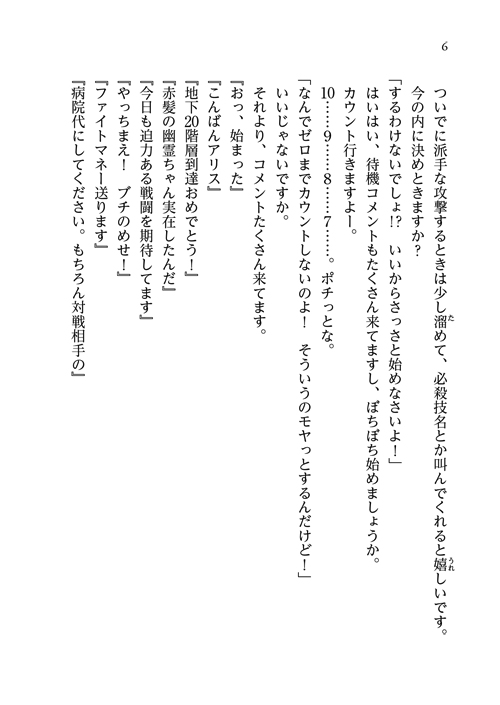 6
ついでに派手な攻撃するときは少し溜めて、必殺技名とか叫んでくれると嬉しいです。
今の内に決めときますか？
「するわけないでしょ!?　いいからさっさと始めなさいよ！」
はいはい、待機コメントもたくさん来てますし、ぽちぽち始めましょうか。
カウント行きますよー。
10……9……8……7……。ポチっとな。
「なんでゼロまでカウントしないのよ！　そういうのモヤっとするんだけど！」
いいじゃないですか。
それより、コメントたくさん来てます。
『おっ、始まった』
『こんばんアリス』
『地下20階層到達おめでとう！』
『赤髪の幽霊ちゃん実在したんだ』
『今日も迫力ある戦闘を期待してます』
『やっちまえ！　ブチのめせ！』
『ファイトマネー送ります』
『病院代にしてください。もちろん対戦相手の』